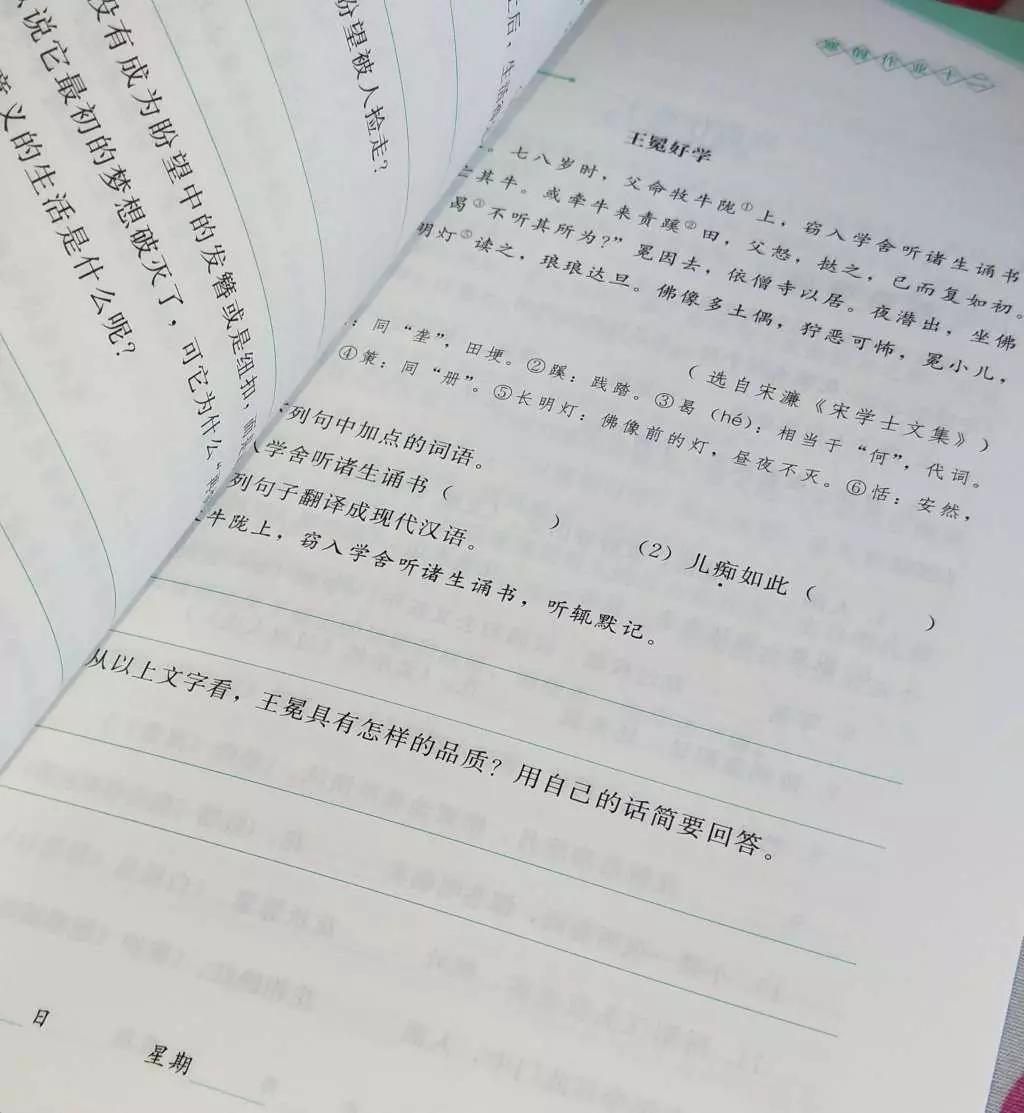 没有成为盼望中的发簪或是纽扣，而
说它最初的梦想破灭了，可它为什么
义的生活是什么呢？
盼望被人捡走？
后，生活
寒假作业十二
王冕好学
七八岁时，父命牧牛陇①上，窃入学舍听诸生诵书
其牛。或牵牛来责蹊②田，父怒，挞之，已而复如初。
曷③不听其所为？”冕因去，依僧寺以居。夜潜出，坐佛
明灯⑤读之，琅琅达旦。佛像多土偶，狞恶可怖，冕小儿，
（选自宋濂《宋学士文集》）
：同“垄”，田埂。②蹊：践踏。③曷（hé）：相当于“何”，代词。
④策：同“册”。⑤长明灯：佛像前的灯，昼夜不灭。⑥恬：安然，
列句中加点的词语。
入学舍听诸生诵书（ ） （2）儿痴如此（ ）
列句子翻译成现代汉语。
牛陇上，窃入学舍听诸生诵书，听辄默记。
从以上文字看，王冕具有怎样的品质？用自己的话简要回答。
日 星期